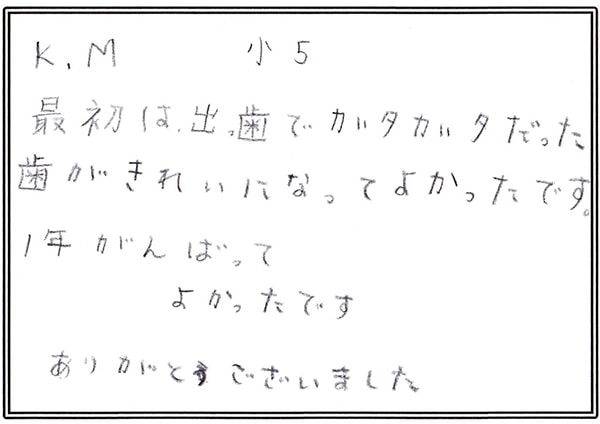 K.M 小5
最初は、出っ歯でガタガタだった
歯がきれいになってよかったです。
1年がんばって
よかったです
ありがとうございました